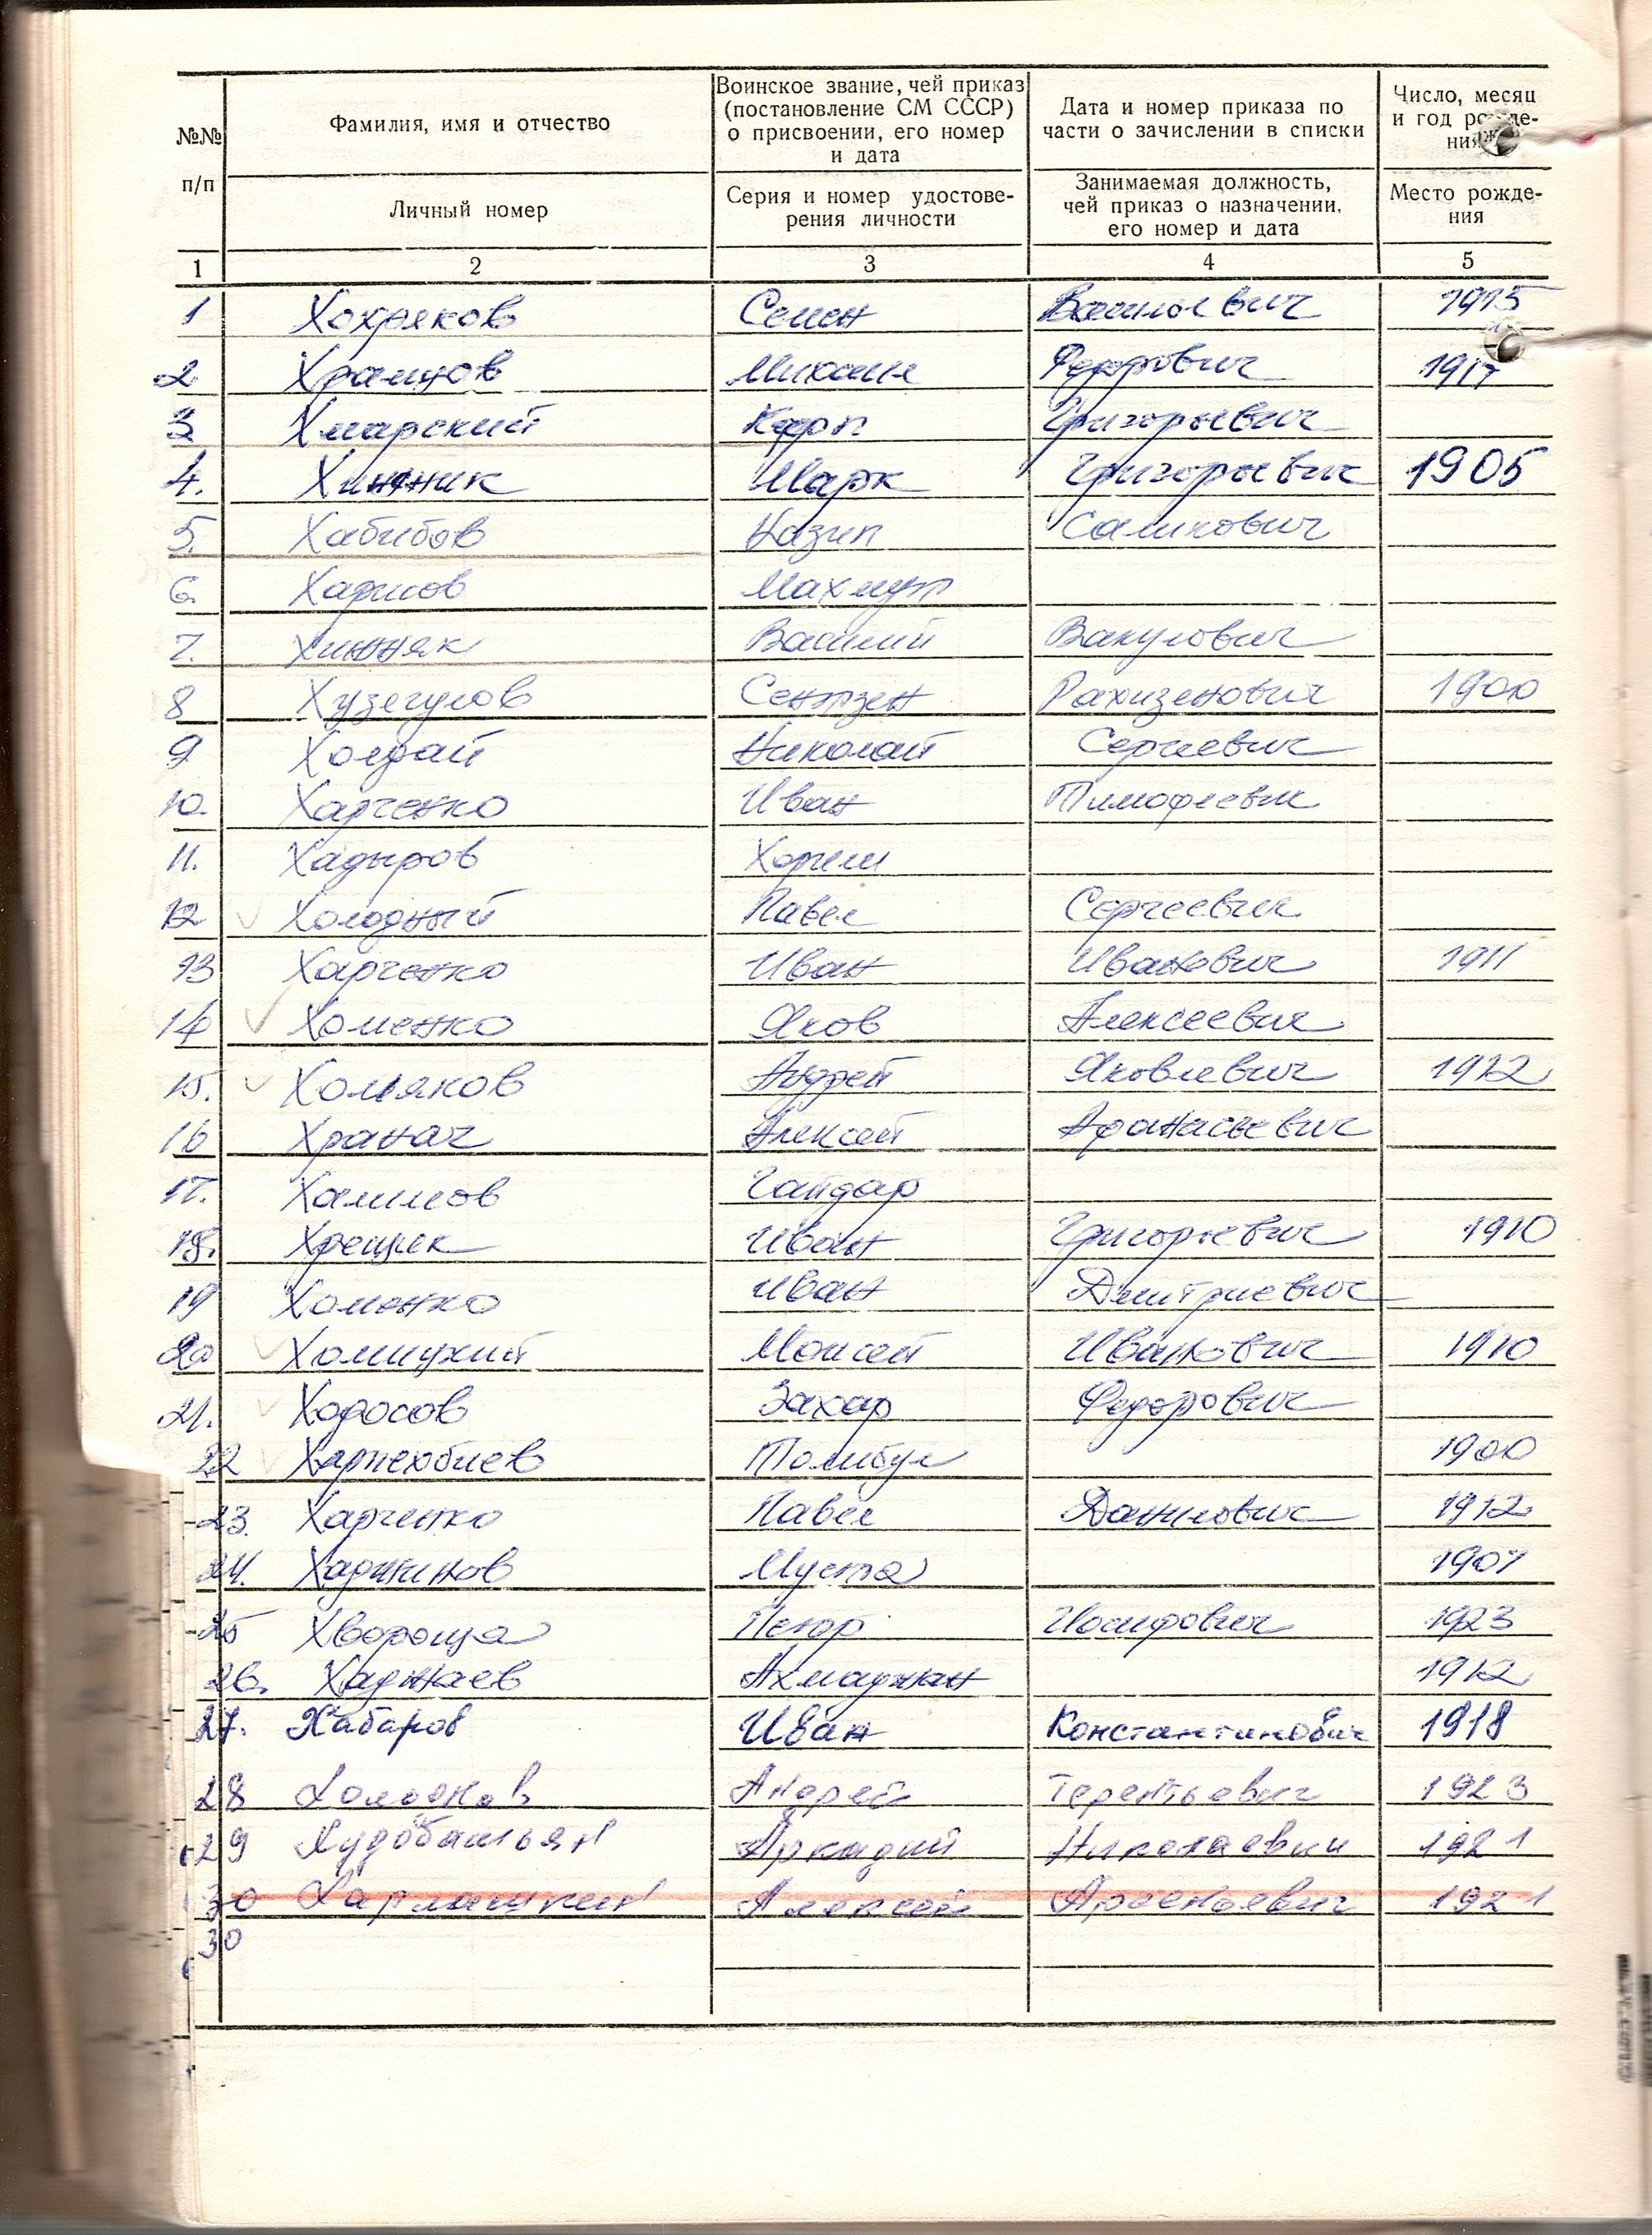 №№ п/п
Фамилия, имя и отчество
Личный номер
Воинское звание, чей приказ
(постановление СМ СССР)
о присвоении, его номер
и дата
Серия и номер удостове-
рения личности
Дата и номер приказа по
части о зачислении в списки
Занимаемая должность,
чей приказ о назначении,
его номер и дата
Число, месяц
и год рожде-
ния
Место рожде-
ния
1 2 3 4 5
1 Хохряков Семен Васильевич 1915
2 Храмцов Михаил Федорович 1917
3 Хмарский Карп Григорьевич
4. Марк Григорьевич 1905
5. Хабибов Назип Салихович
6. Харисов Махмут
7. Хижняк Василий Вакулович
8 Хузегулов 1900
9 Холдай Николай Сергеевич
10. Харченко Иван Тимофеевич
11. Хадыров
12 Холодный Павел Сергеевич
13 Харченко Иван Иванович 1911
14 Хоменко Яков Алексеевич
15. Хомяков Андрей Яковлевич 1912
16 Храпач Алексей Афанасьевич
17. Халилов Гайдар
18. Хрещик Иван Григорьевич 1910
19 Хоменко Иван Дмитриевич
20 Хомицкий Моисей Иванович 1910
21. Ходосов Захар Федорович
22 1900
23. Харченко Павел Данилович 1912
24. Муста 1907
25 Хвороща Петр Иосифович 1923
26. Хаджаев Ахмаджан 1912
27. Хабаров Иван Константинович 1918
28 Холодков Андрей Терентьевич 1923
29 Худобашьян Аркадий Николаевич 1921
30 Харлашкин Алексей Арсентьевич 1921
30